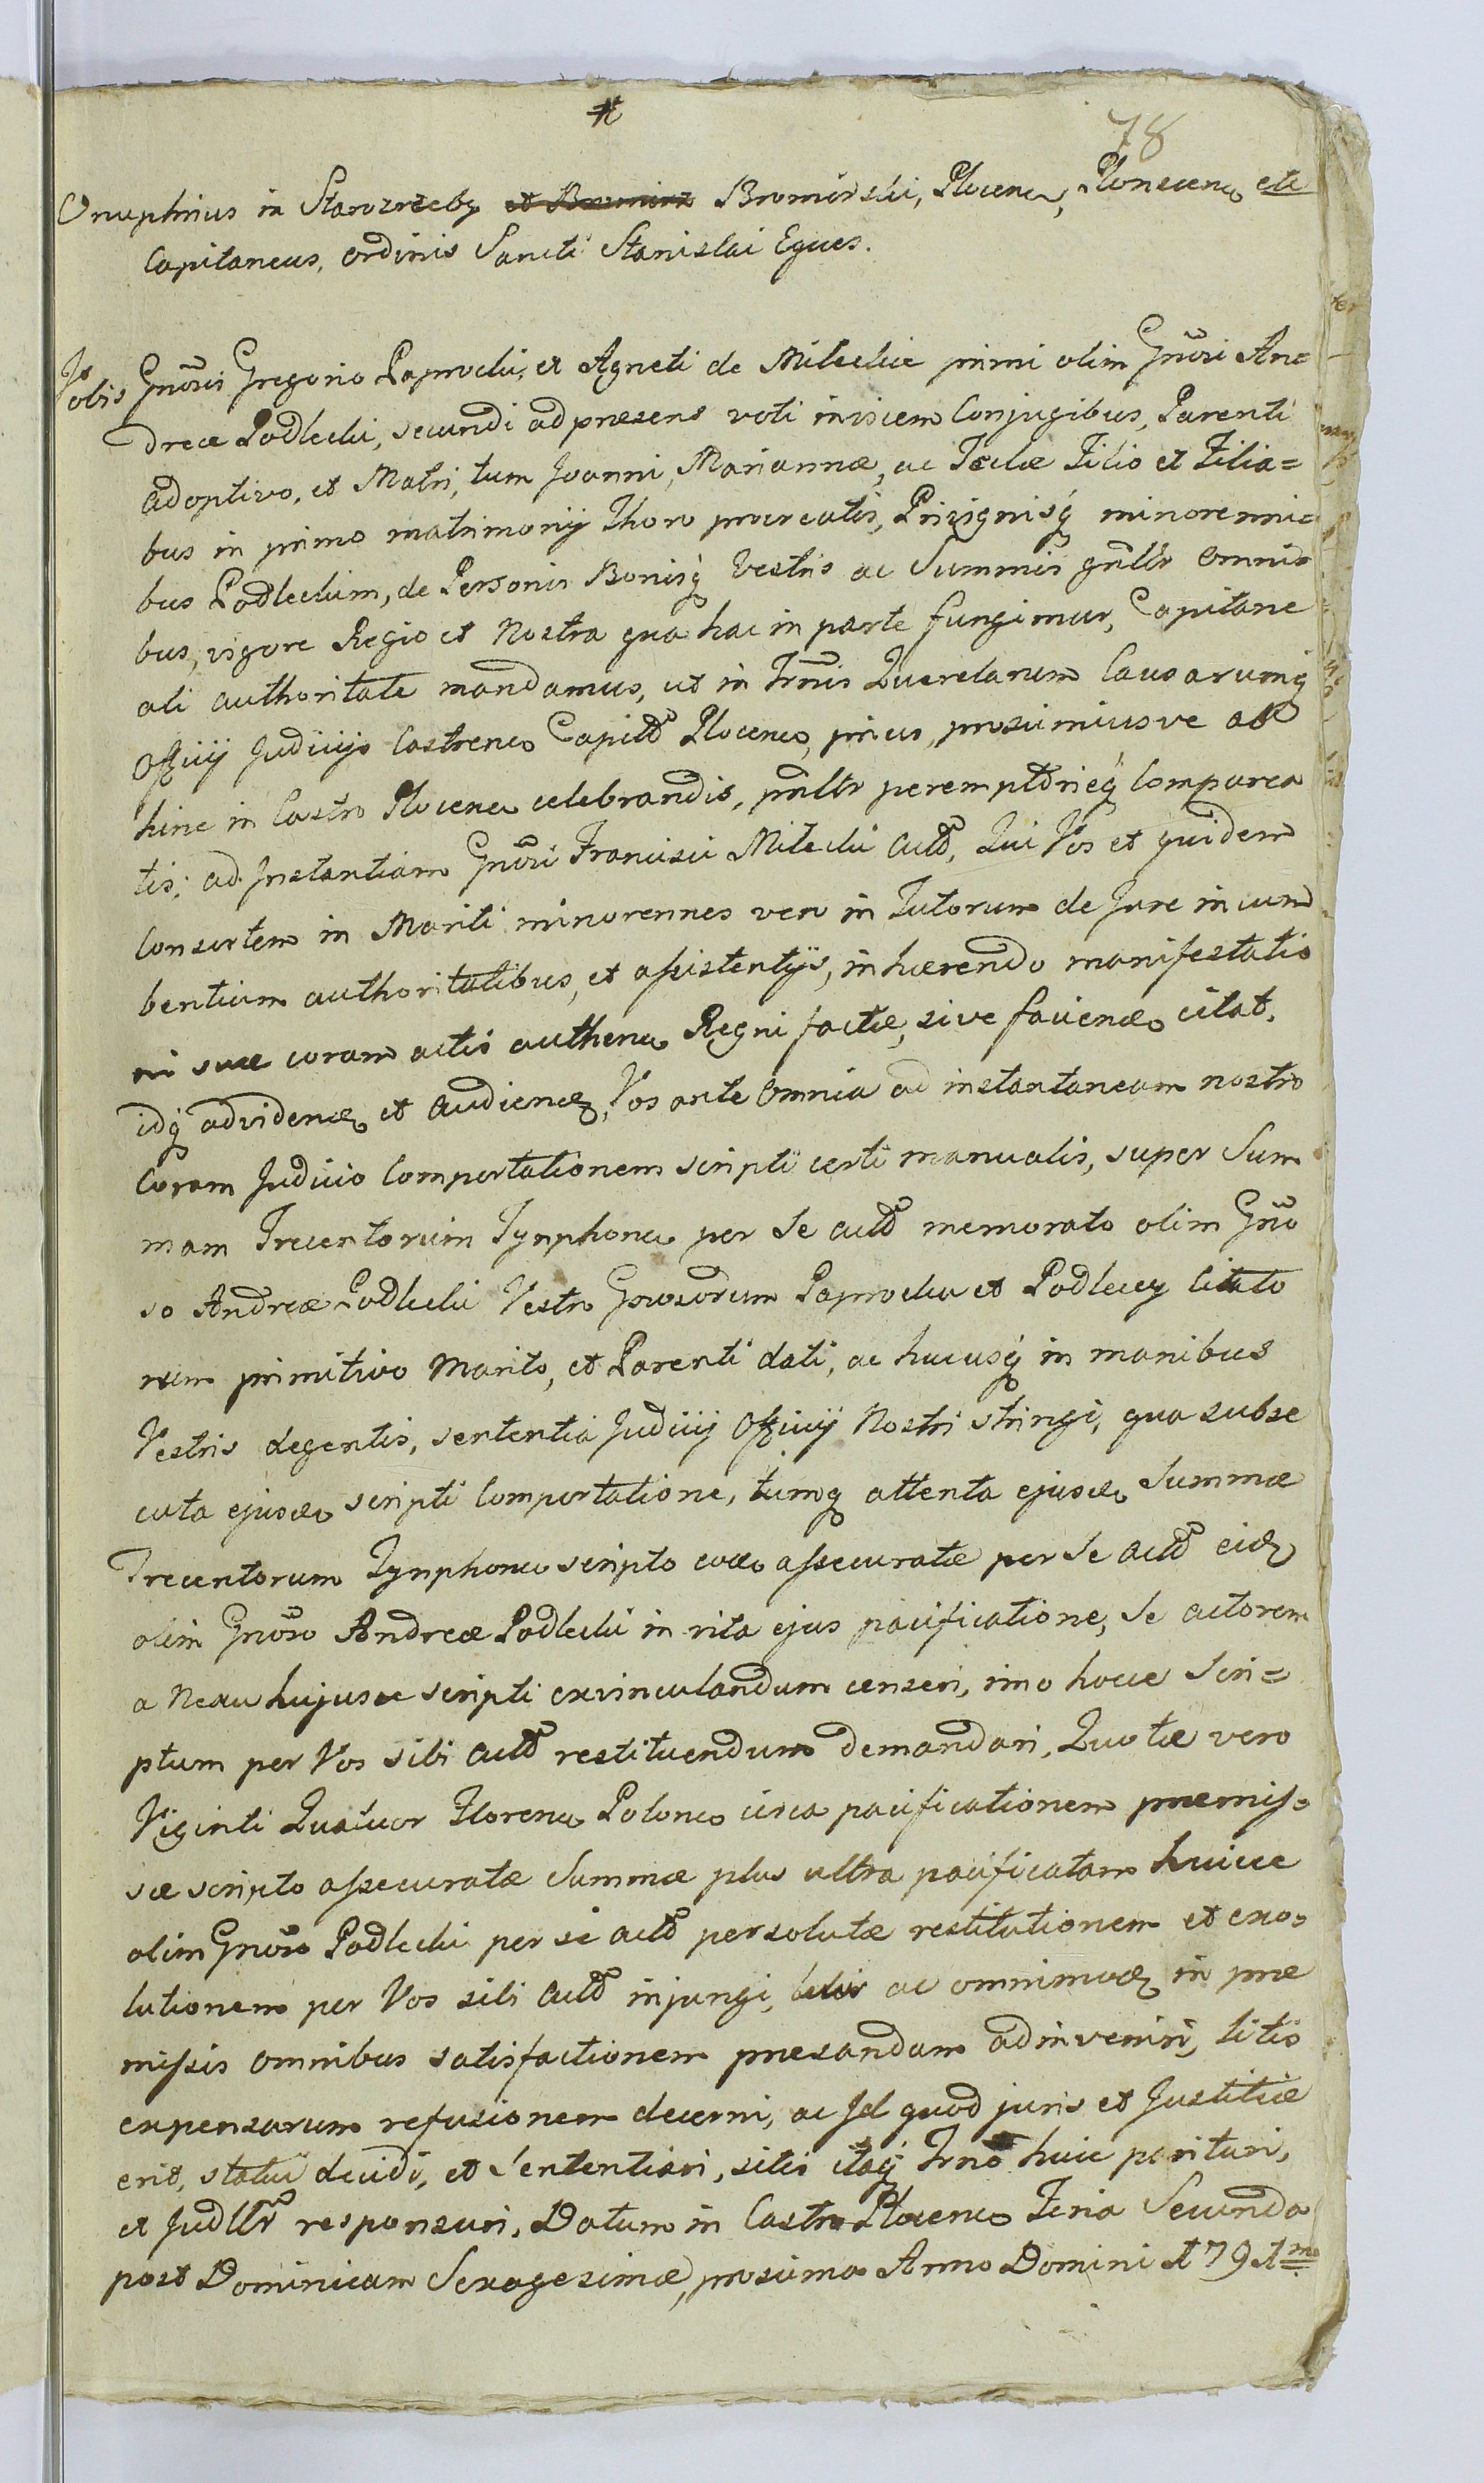 78
Onuphrius in Starozreby et Bromierz Bromirski, Plocens, Plonscens etc
Capitaneus, Ordinis Sancti Stanislai Eques.
Vobis Gnõsis Gregorio Paprocki, et Agneti de Mileckie primi olim Gnõsi An=
dreæ Podlecki, secundi ad præsens voti invicem Conjugibus, Parenti
adoptivo, et Matri, tum Joanni, Mariannæ, ac Teclæ Filio et Filia=
bus in primo matrimonÿ thoro procreatis, Privignisq́ minorenni=
bus Podleckim, de Personis Bonisq́ Vestris ac Summis gñlbr Omni
bus, vigore Regio et Nostra qua hac in parte fungimur, Capitane
ali authoritate mandamus, ut in Trmis Querelarum Causarumq́
Officÿ Judicÿs Castrens Capitt Plocens, prius, proximiusve ab
hinc in Castro Plocens celebrandis, pñlbr peremptorieq́ Comparea
tis; ad Instantiam Gnõsi Francisci Milecki Actt, Qui Vos et quidem
Consortem in Mariti minorennes vero in Tutorum de Jure incum
bentium authoritatibus, et assistentÿs, inhærendo manifestatio
ni suæ coram actis authens Regni factæ, sive faciendæ citat,
idq́ ad videndum et audiendum, Vos ante Omnia ad instantaneam nostro
Coram Judicio Comportationem scripti certi manualis, super Sum
mam Trecentorum Tynphons per Se actt memorato olim Gnõ
so Andreæ Podlecki Vestro Gnosorum Paprocka et Podleccy Citato
rum primitivo Marito, et Parenti dati, ac hucusq́ in manibus
Vestris degentis, sententia Judicÿ Officÿ Nostri stringi, qua subse
cuta ejusdem scripti Comportatione, tumq́ attenta ejusdem Summæ
Trecentorum Tynphons scripto eodem assecuratæ per Se Actt eid
olim Gnõso Andreæ Podlecki in vita ejus pacificatione, Se actorem
a Nexu hujusce scripti exvinculandum censeri, imo hocce Scri=
ptum per Vos sibi Actt restituendum demandari, Quotæ vero
Viginti Quatuor Florens Polons circa pacificationem præmis=
sæ scripto assecuratæ Summæ plus ultra pacificatam huicce
olim Gnõso Podlecki per se actt persolutæ restitutionem et exo=
lutionem per Vos sibi Actt injungi, ac omnimod in præ
missis omnibus satisfactionem præstandam adinveniri, litis
expensarum refusionem decerni, ac Id quod juris et Justitiæ
erit, statui decidi, et Sententiari, sitis itaq́ Trno huic parituri,
et Judllr responsuri, Datum in Castro Plocens Feria Secunda
post Dominicam Sexagesimæ, proxima Anno Domini 1791mo